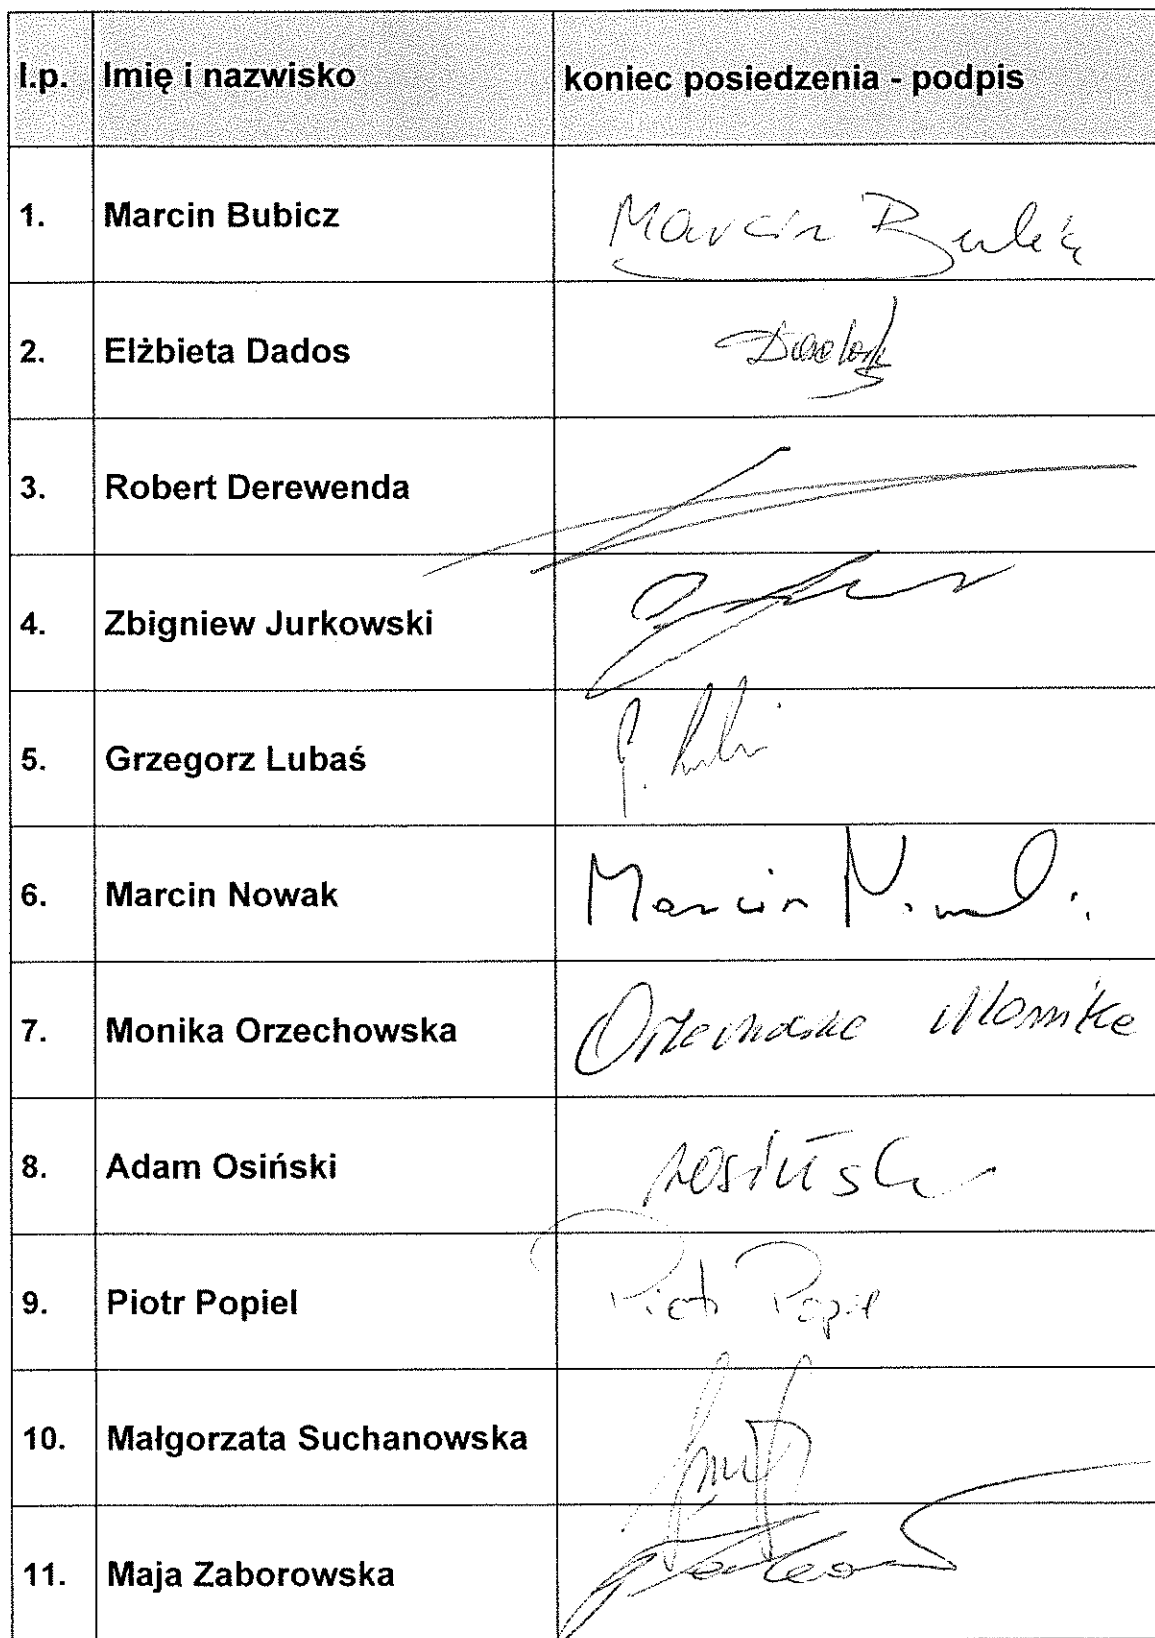 l.p. Imię i nazwisko koniec posiedzenia - podpis
1. Marcin Bubicz Marcin
2. Elżbieta Dados
3. Robert Derewenda
4. Zbigniew Jurkowski
5. Grzegorz Lubaś
6. Marcin Nowak Marcin
7. Monika Orzechowska
8. Adam Osiński
9. Piotr Popiel Piotr Popiel
10. Małgorzata Suchanowska
11. Maja Zaborowska